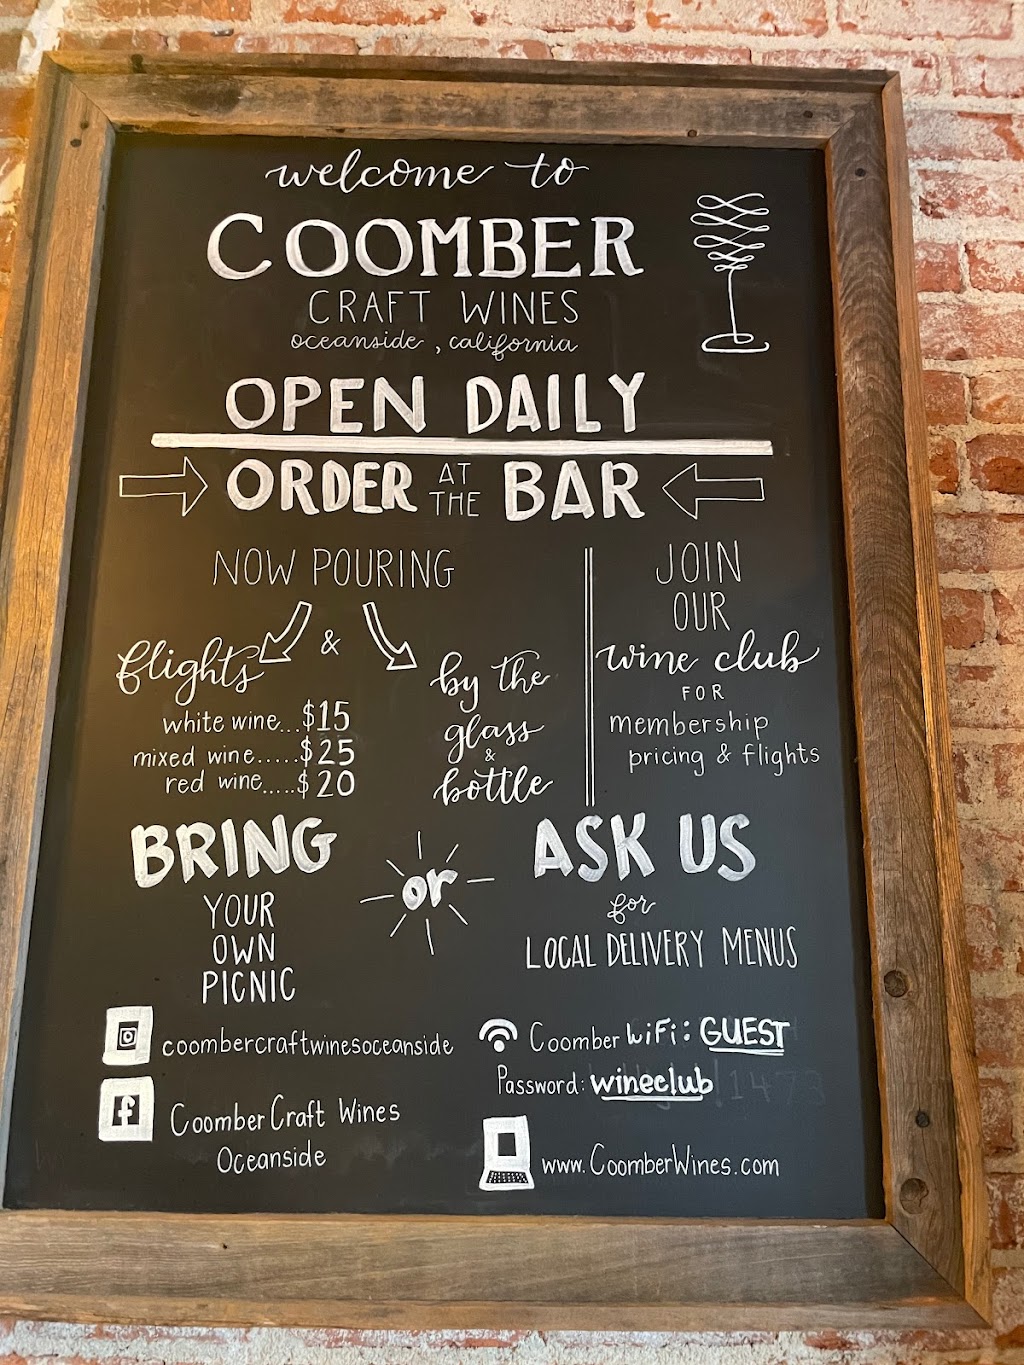 welcome to
COOMBER
CRAFT WINES
oceanside, california
OPEN DAILY
ORDER AT THE BAR
NOW POURING
flights & by the
glass
&
bottle
white wine...$15
mixed wine.....$25
red wine.....$20
JOIN
OUR
wine club
FOR
membership
pricing & flights
BRING
YOUR
OWN
PICNIC
or
ASK US
for
LOCAL DELIVERY MENUS
coombercraftwinesoceanside
f Coomber Craft Wines
Oceanside
Coomber WiFi: GUEST
Password: wineclub
www.CoomberWines.com